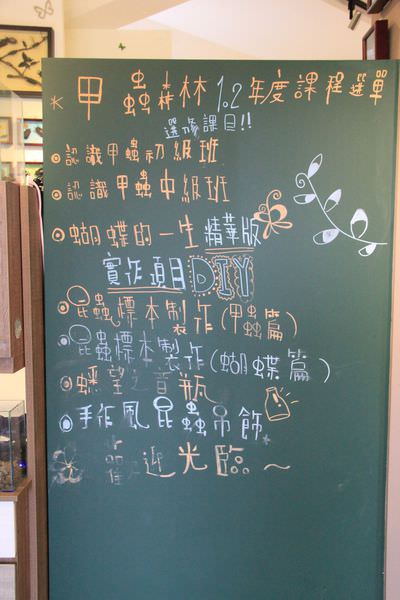 甲蟲森林1.2年度課程選單
選修課目!!
認識甲蟲初級班
認識甲蟲中級班
蝴蝶的一生精華版
實作項目DIY
昆蟲標本製作(甲蟲篇)
昆蟲標本製作(蝴蝶篇)
蟝望之音瓶
手作風昆蟲吊飾
迎光臨~